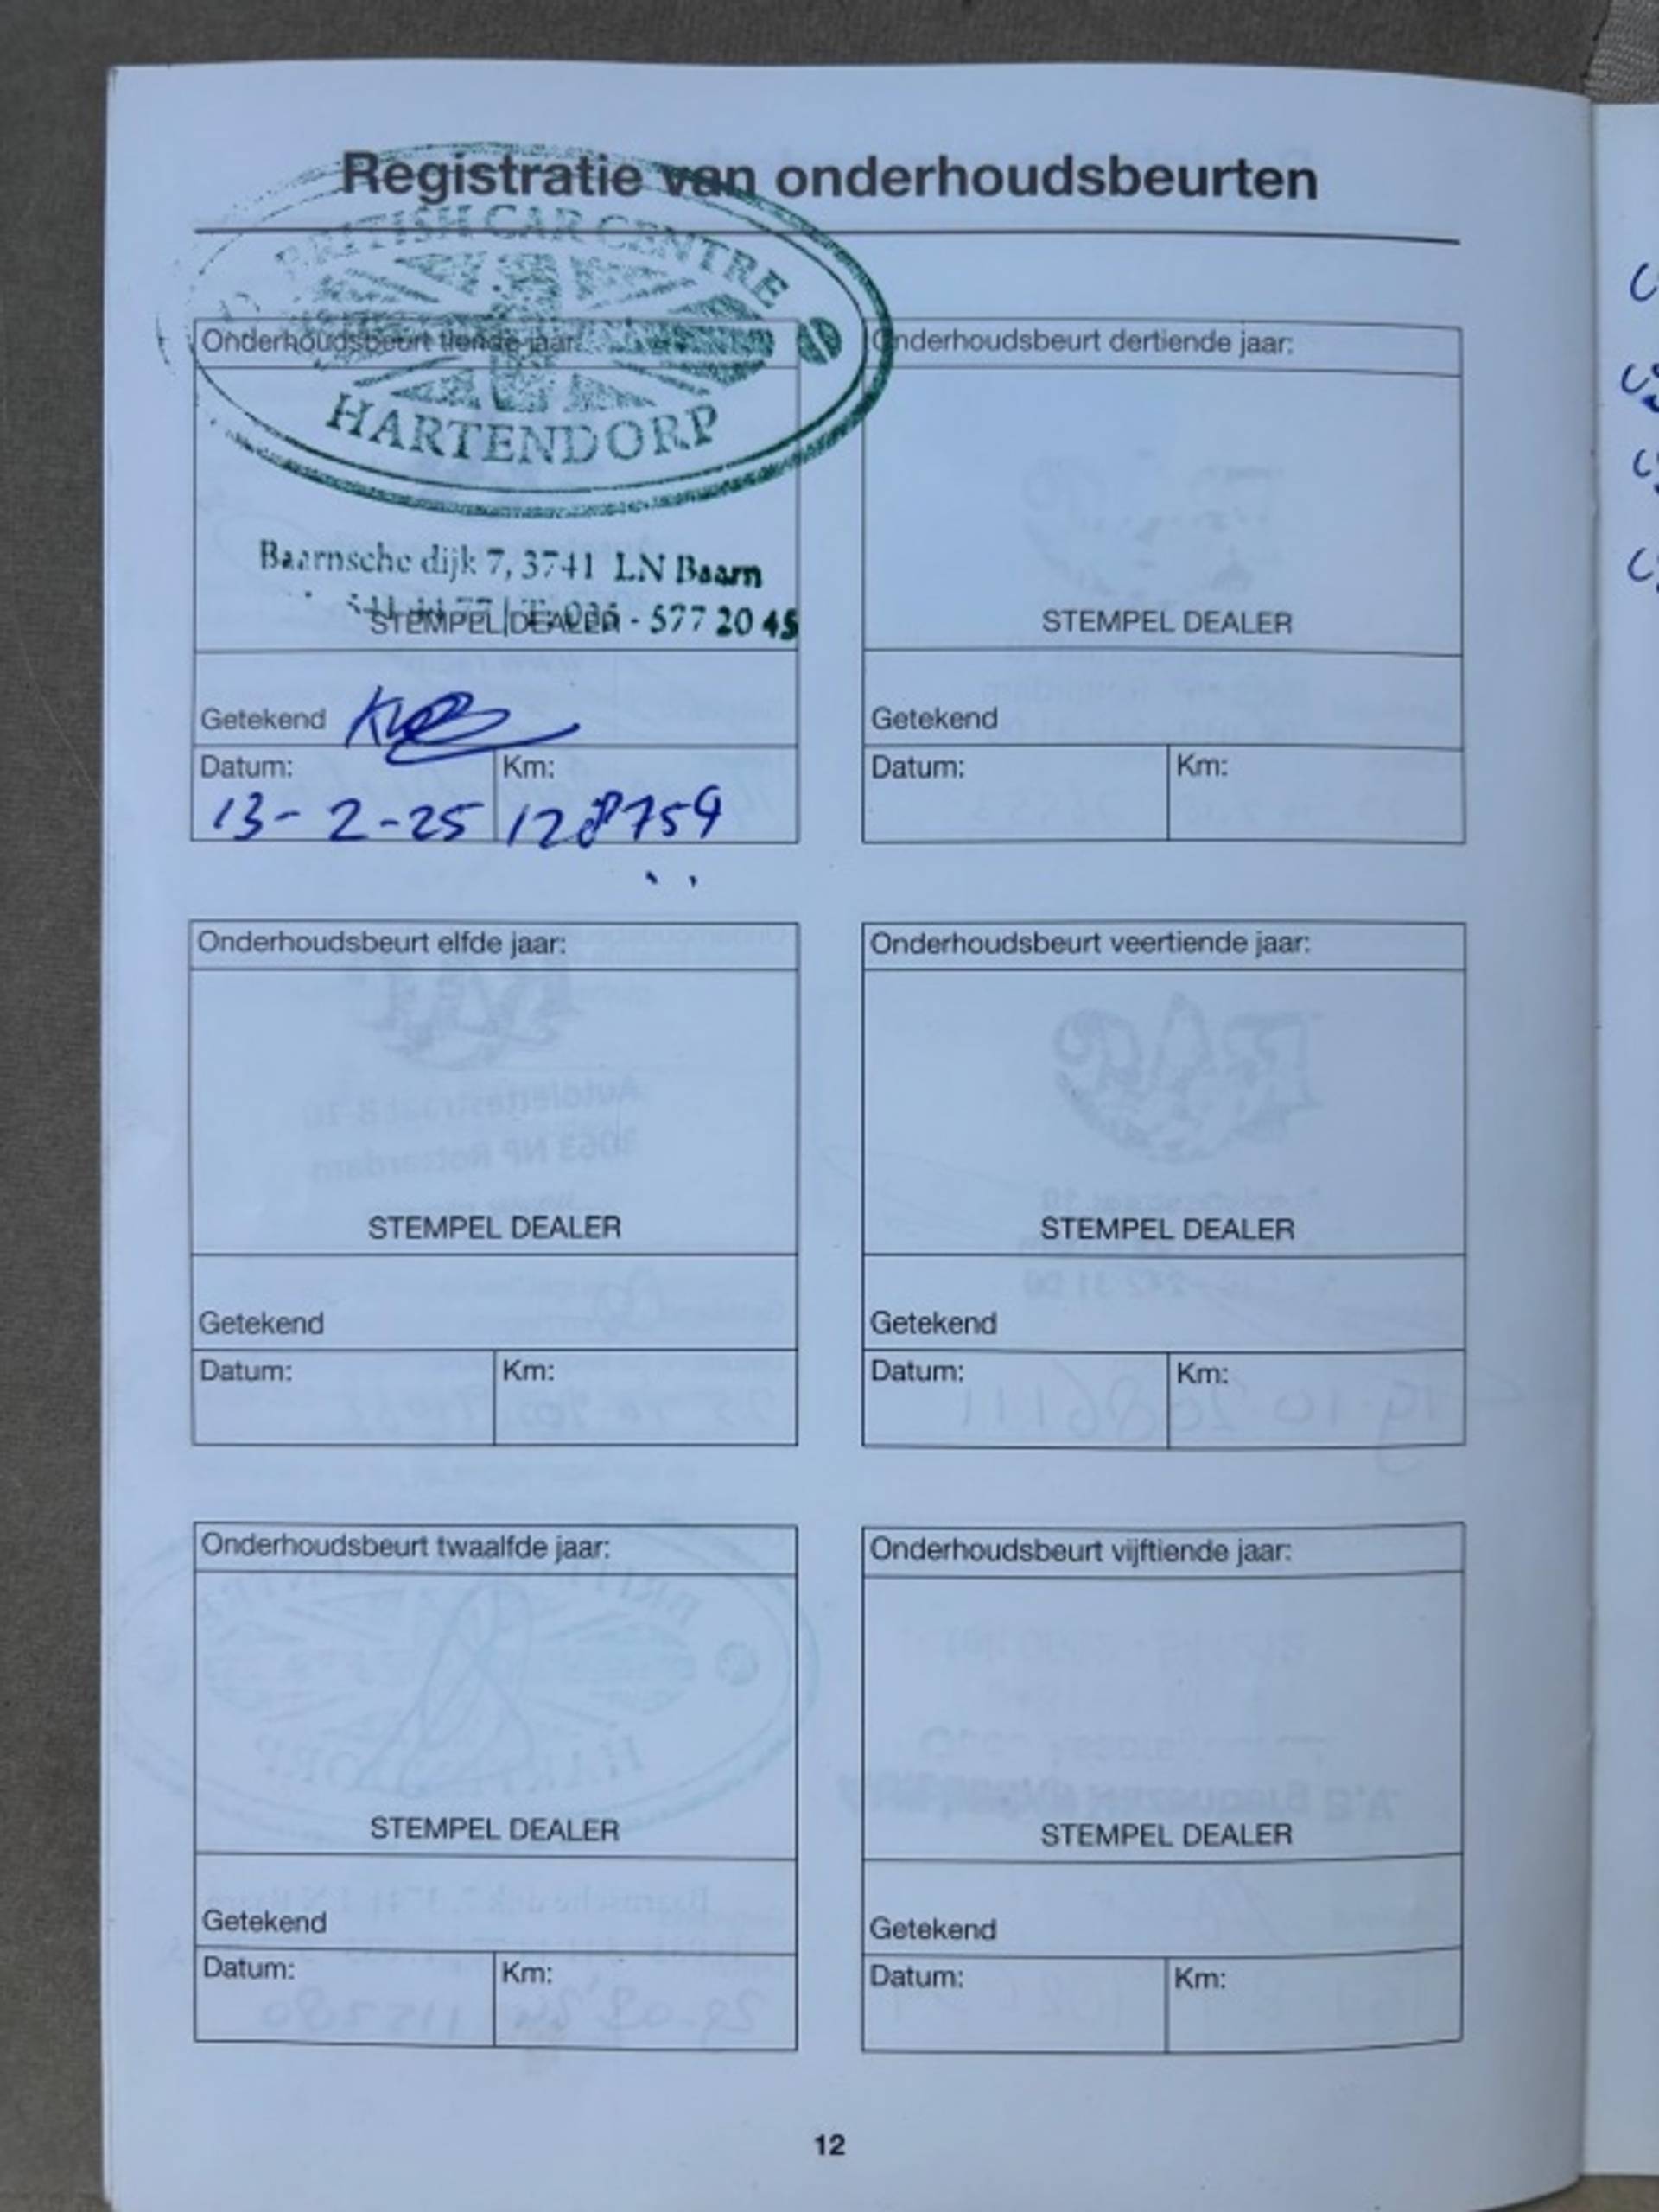 Registratie van onderhoudsbeurten
BRITISH CAR CENTRE
HARTENDORP
Onderhoudsbeurt tiende jaar:
Baarnsche dijk 7, 3741 LN Baarn
577 20 45
STEMPEL DEALER
Getekend
Datum: Km:
13-2-25 128759
Onderhoudsbeurt elfde jaar:
STEMPEL DEALER
Getekend
Datum: Km:
Onderhoudsbeurt twaalfde jaar:
STEMPEL DEALER
Getekend
Datum: Km:
Onderhoudsbeurt dertiende jaar:
STEMPEL DEALER
Getekend
Datum: Km:
Onderhoudsbeurt veertiende jaar:
STEMPEL DEALER
Getekend
Datum: Km:
Onderhoudsbeurt vijftiende jaar:
STEMPEL DEALER
Getekend
Datum: Km:
12